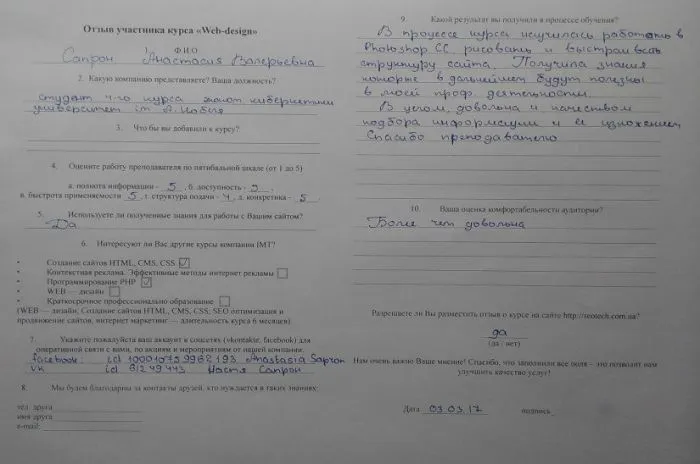 Отзыв участника курса «Web-design»
1. ФИО
Сапрон Анастасия Валерьевна
2. Какую компанию представляете? Ваша должность?
студент 4-го курса
университет ім
3. Что бы вы добавили к курсу?
4. Оцените работу преподавателя по пятибальной шкале (от 1 до 5)
а. полнота информации - 5, б. доступность - 5,
в. быстрота применяемости 5, г. структура подачи - 4, д. конкретика - 5.
5. Используете ли полученные знания для работы с Вашим сайтом?
Да
6. Интересуют ли Вас другие курсы компании IMT?
• Создание сайтов HTML, CMS, CSS ☑
• Контекстная реклама. Эффективные методы интернет рекламы ☐
• Программирование PHP ☑
• WEB — дизайн ☐
• Краткосрочное профессионально образование ☐
(WEB — дизайн, Создание сайтов HTML, CMS, CSS, SEO оптимизация и
продвижение сайтов, интернет маркетинг — длительность курса 6 месяцев)
7. Укажите пожалуйста ваш аккаунт в соцсетях (vkontakte, facebook) для
оперативной связи с вами, по акциям и мероприятиям от нашей компании.
facebook: id 100010759962193 Anastasia Sapron
vk id 61249443 Настя Сапрон
8. Мы будем благодарны за контакты друзей, кто нуждается в таких знаниях:
тел. друга
имя друга
e-mail:
9. Какой результат вы получили в процессе обучения?
В процессе курса научилась работать в
Photoshop CC, рисовать и выстраивать
структуру сайта. Получила знания
которые в дальнейшем будут полезны
в моей проф. деятельности.
В целом, довольна и качеством
подбора информации и её изложением
Спасибо преподавателю
10. Ваша оценка комфортабельности аудитории?
Более чем довольна
Разрешаете ли Вы разместить отзыв о курсе на сайте http://seotech.com.ua?
да
(да / нет)
Нам очень важно Ваше мнение! Спасибо, что заполнили все поля – это позволит нам
улучшить качество услуг!
Дата 03.03.17 подпись